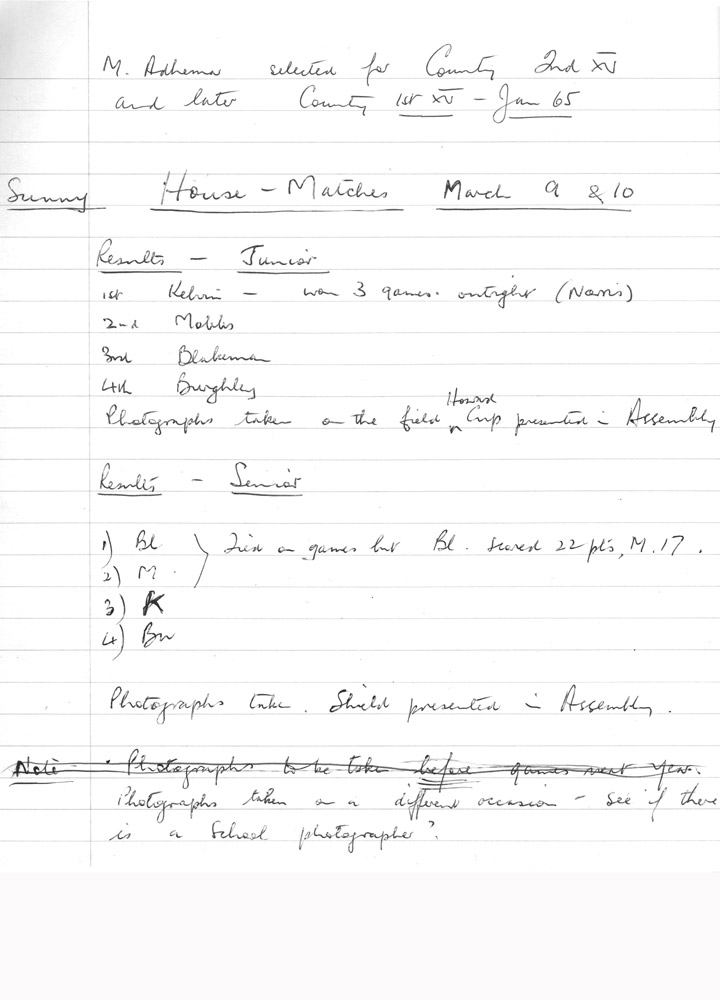 M. Adhemar selected for County 2nd XV
and later County 1st XV - Jan 65
Sunny House - Matches March 9 & 10
Results - Junior
1st Kelvin - won 3 games. outright (Norris)
2nd Mobbs
3rd Blakeman
4th Burghley
Howard
Photographs taken on the field Cup presented in Assembly
Results - Senior
1) Bl } Tied on games but Bl. scored 22 pts, M. 17.
2) M.
3) K
4) Bu
Photographs take. Shield presented in Assembly.
Note - Photographs to be taken before games next year.
Photographs taken on a different occasion - see if there
is a School photographer?